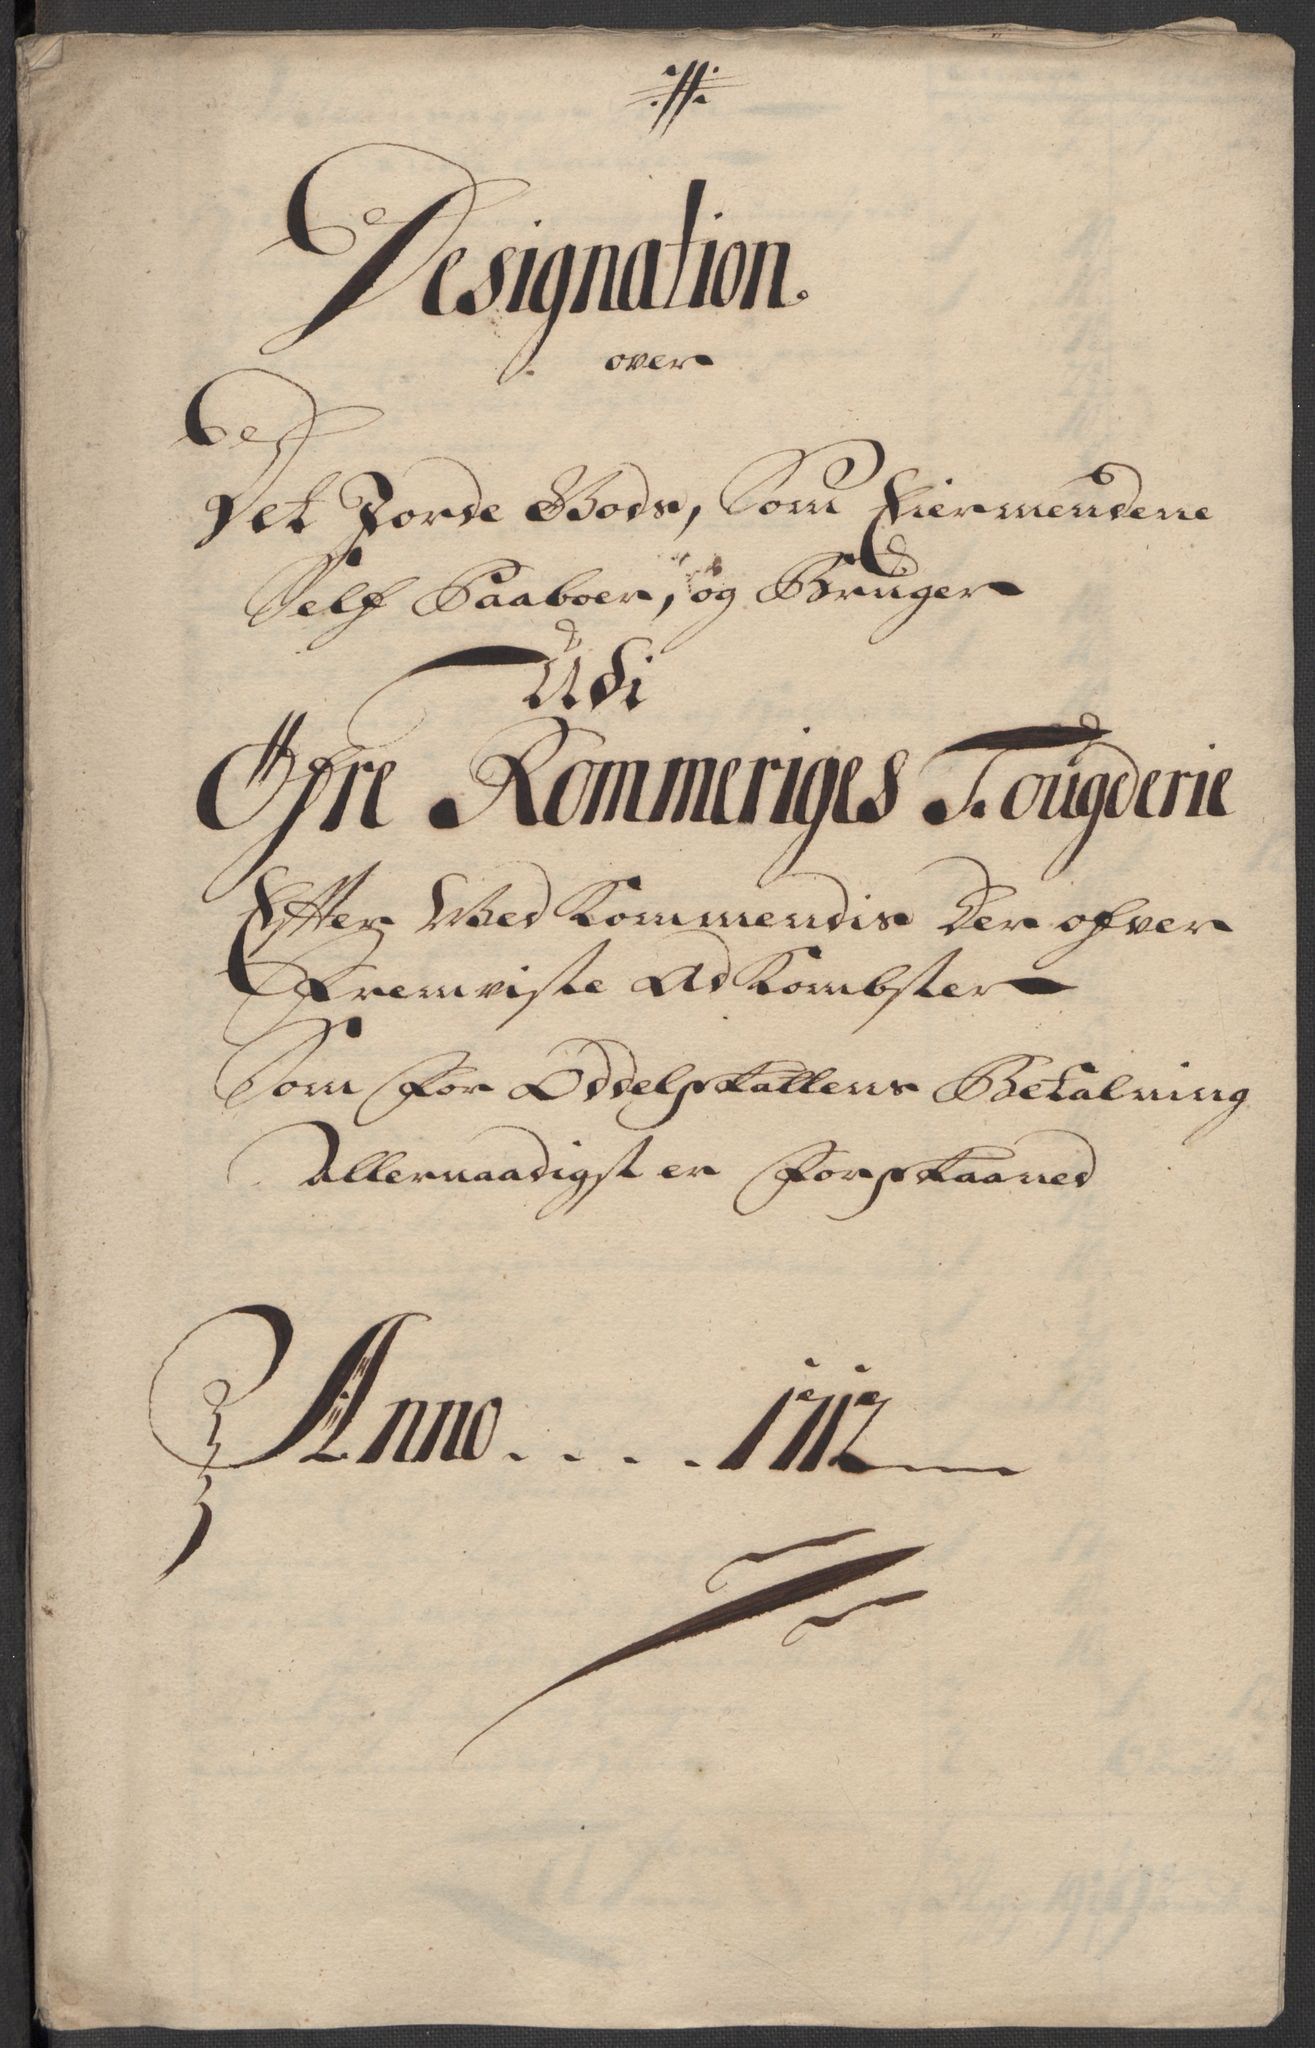 Designation.
over
Det Jorde Gods, Som Eiermendene
Self Paaboer, og Bruger
Udi
Øfre Rommeriges Fougderie
Efter Wed Kommendis Der ofver
Fremviste AdKombster
Som for Oddelskattens Betalning
Allernaadigst er Forskaaned
Anno. . . . . 1712